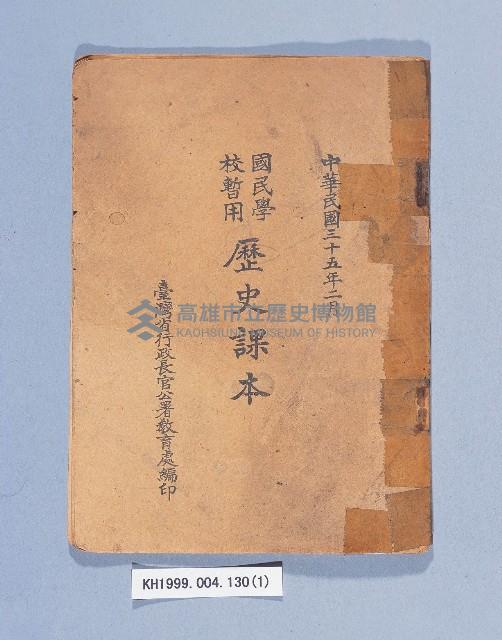 中華民國三十五年二月
國民學
校暫用
歷史課本
臺灣省行政長官公署教育處編印
高雄市立歷史博物館
KAOHSIUNG MUSEUM OF HISTORY
KH1999.004.130(1)